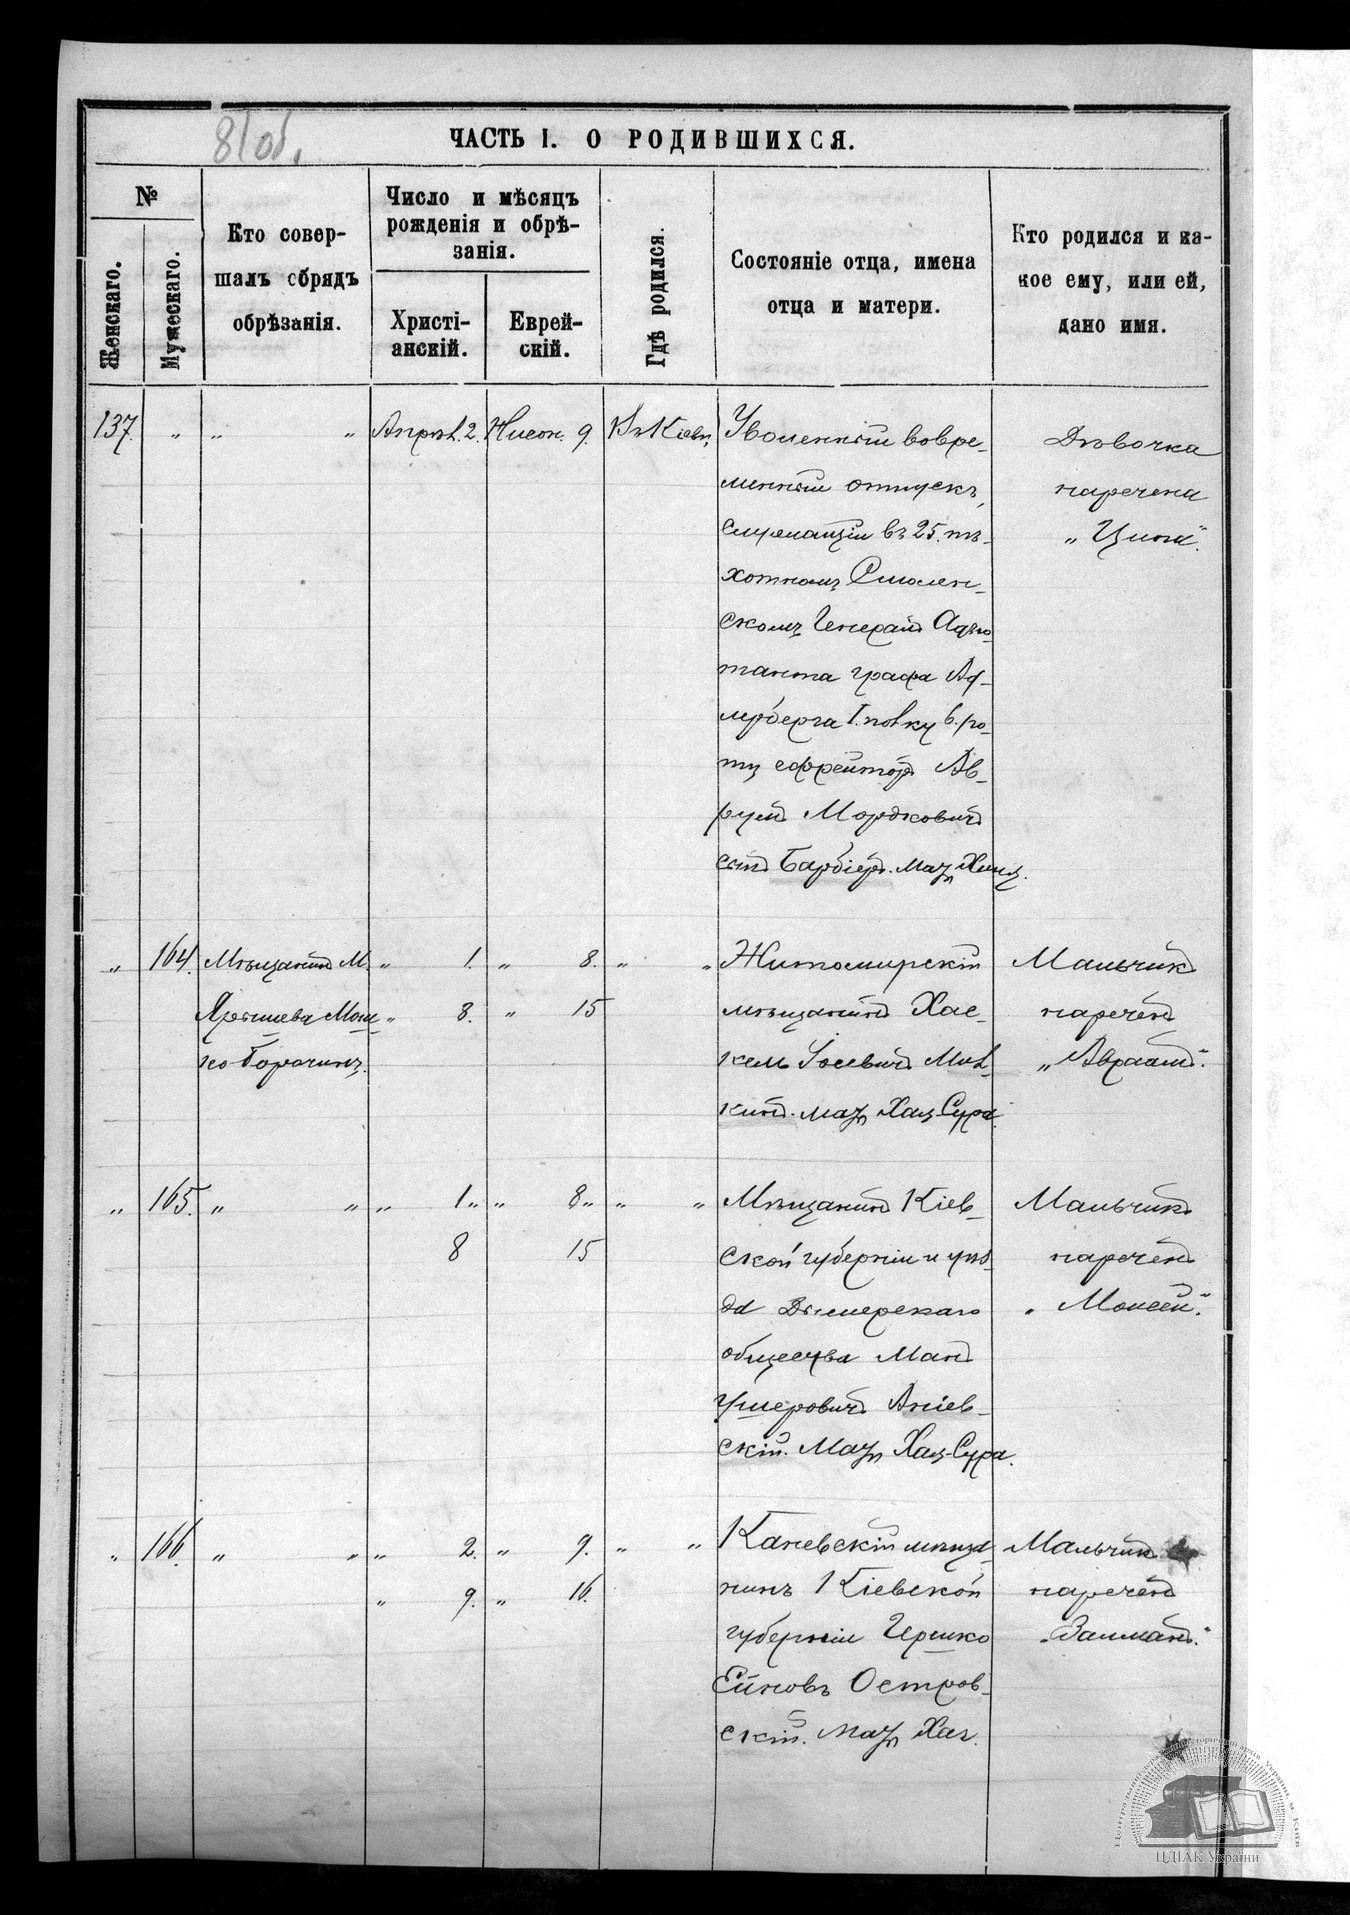 81об.
ЧАСТЬ I. О РОДИВШИХСЯ.
№
Женскаго.
Мужескаго.
Кто совер-
шалъ обрядъ
обрѣзанія.
Число и мѣсяцъ
рожденія и обрѣ-
занія.
Христі-
анскій.
Еврей-
скій.
Гдѣ родился.
Состояніе отца, имена
отца и матери.
Кто родился и ка-
кое ему, или ей,
дано имя.
137. „ „ „ Апрѣл. 2. Нисон. 9. Въ Кіевѣ
Уволенный вовре-
менный отпускъ,
служащій въ 25. пѣ-
хотномъ Смолен-
скомъ Генерал Адъю-
танта графа Ад-
лерберга I. полку 6. ро-
ты ефрейтор Ав-
рум Мордкович
сын Барбіер. мать Хина.
Дѣвочка
наречена
„Ципа“.
„ 164. Мѣщанин М. „ 1. „ 8. „ „
Ярышева Мош „ 8. „ 15
ко Борочинъ.
Житомирскій
мѣщанин Хас-
кель Іосевич Мил-
кин. мать Хая-Сура.
Мальчик
наречен
„Авраам“.
„ 165. „ „ „ 1. „ „ 8. „ „ „
8 15
Мѣщанин Кіев-
ской губерніи и уѣз-
да Дымерскаго
общества Ман
Ушерович Аніев-
скій. мать Хая-Сура.
Мальчик
наречен
„Моисей“.
„ 166. „ „ „ 2. „ 9. „ „
„ 9. „ 16.
Каневскій мѣща-
нинъ Кіевской
губерніи Гершко
Ейновъ Остров-
скій. мать Хая.
Мальчик
наречен
„Залман“.
ЦДІАК України